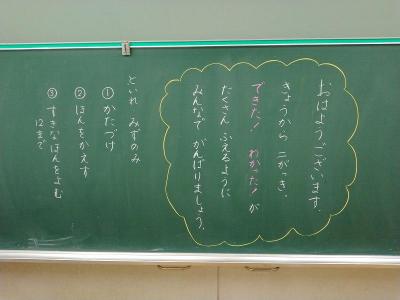 おはようございます。
きょうから 二がっき。
できた! わかった! が
たくさん ふえるように
みんなで がんばりましょう。
といれ みずのみ
① かたづけ
② ほんをかえす
③ すきなほんをよむ
12まで